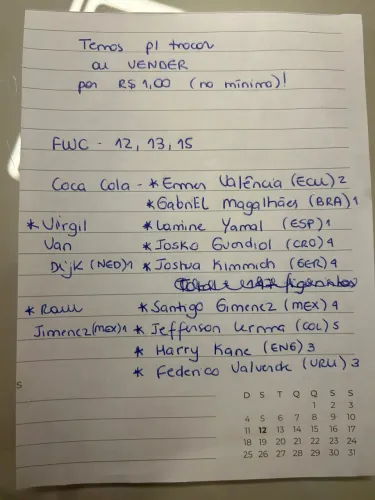 Temos p/ trocar
ou VENDER
por R$ 1,00 (no mínimo)!
FWC - 12, 13, 15
Coca Cola - * Enner Valência (ECU) 2
* GabriEL Magalhães (BRA) 1
* Virgil
Van
Dijk (NED) 1
* Lamine Yamal (ESP) 1
* Josko Gvardiol (CRO) 4
* Joshua Kimmich (GER) 4
* Raul
Jimenez (MEX) 1
* Santigo Gimenez (MEX) 4
* Jefferson Lerma (COL) 5
* Harry Kane (ENG) 3
* Federico Valverde (URU) 3
S
D S T Q Q S S
1 2 3
4 5 6 7 8 9 10
11 12 13 14 15 16 17
18 19 20 21 22 23 24
25 26 27 28 29 30 31